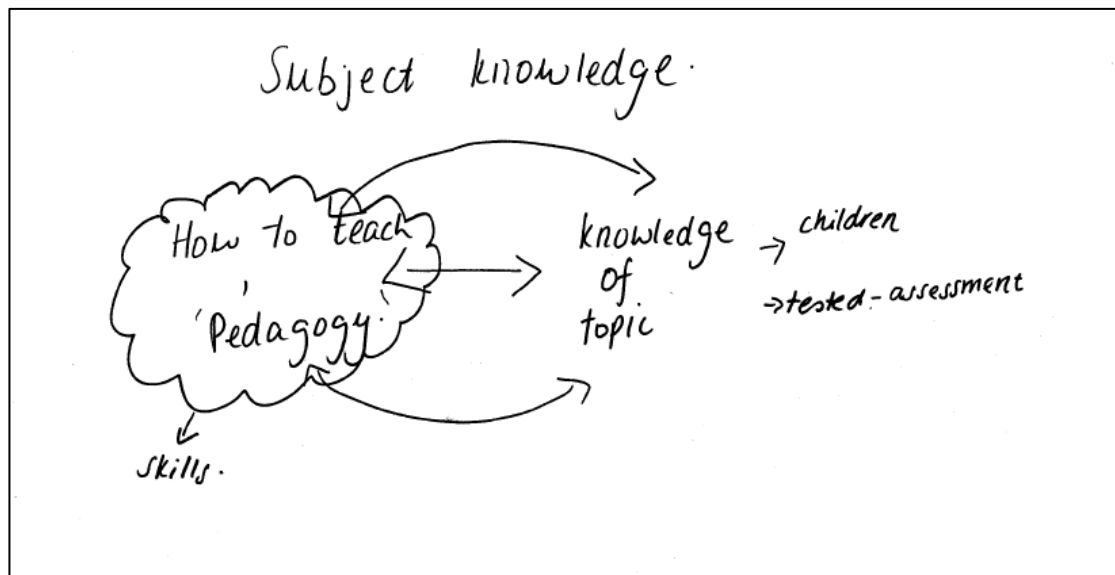 Subject knowledge.
How to teach
'Pedagogy.'
skills.
knowledge
of
topic
→ children
→ tested - assessment